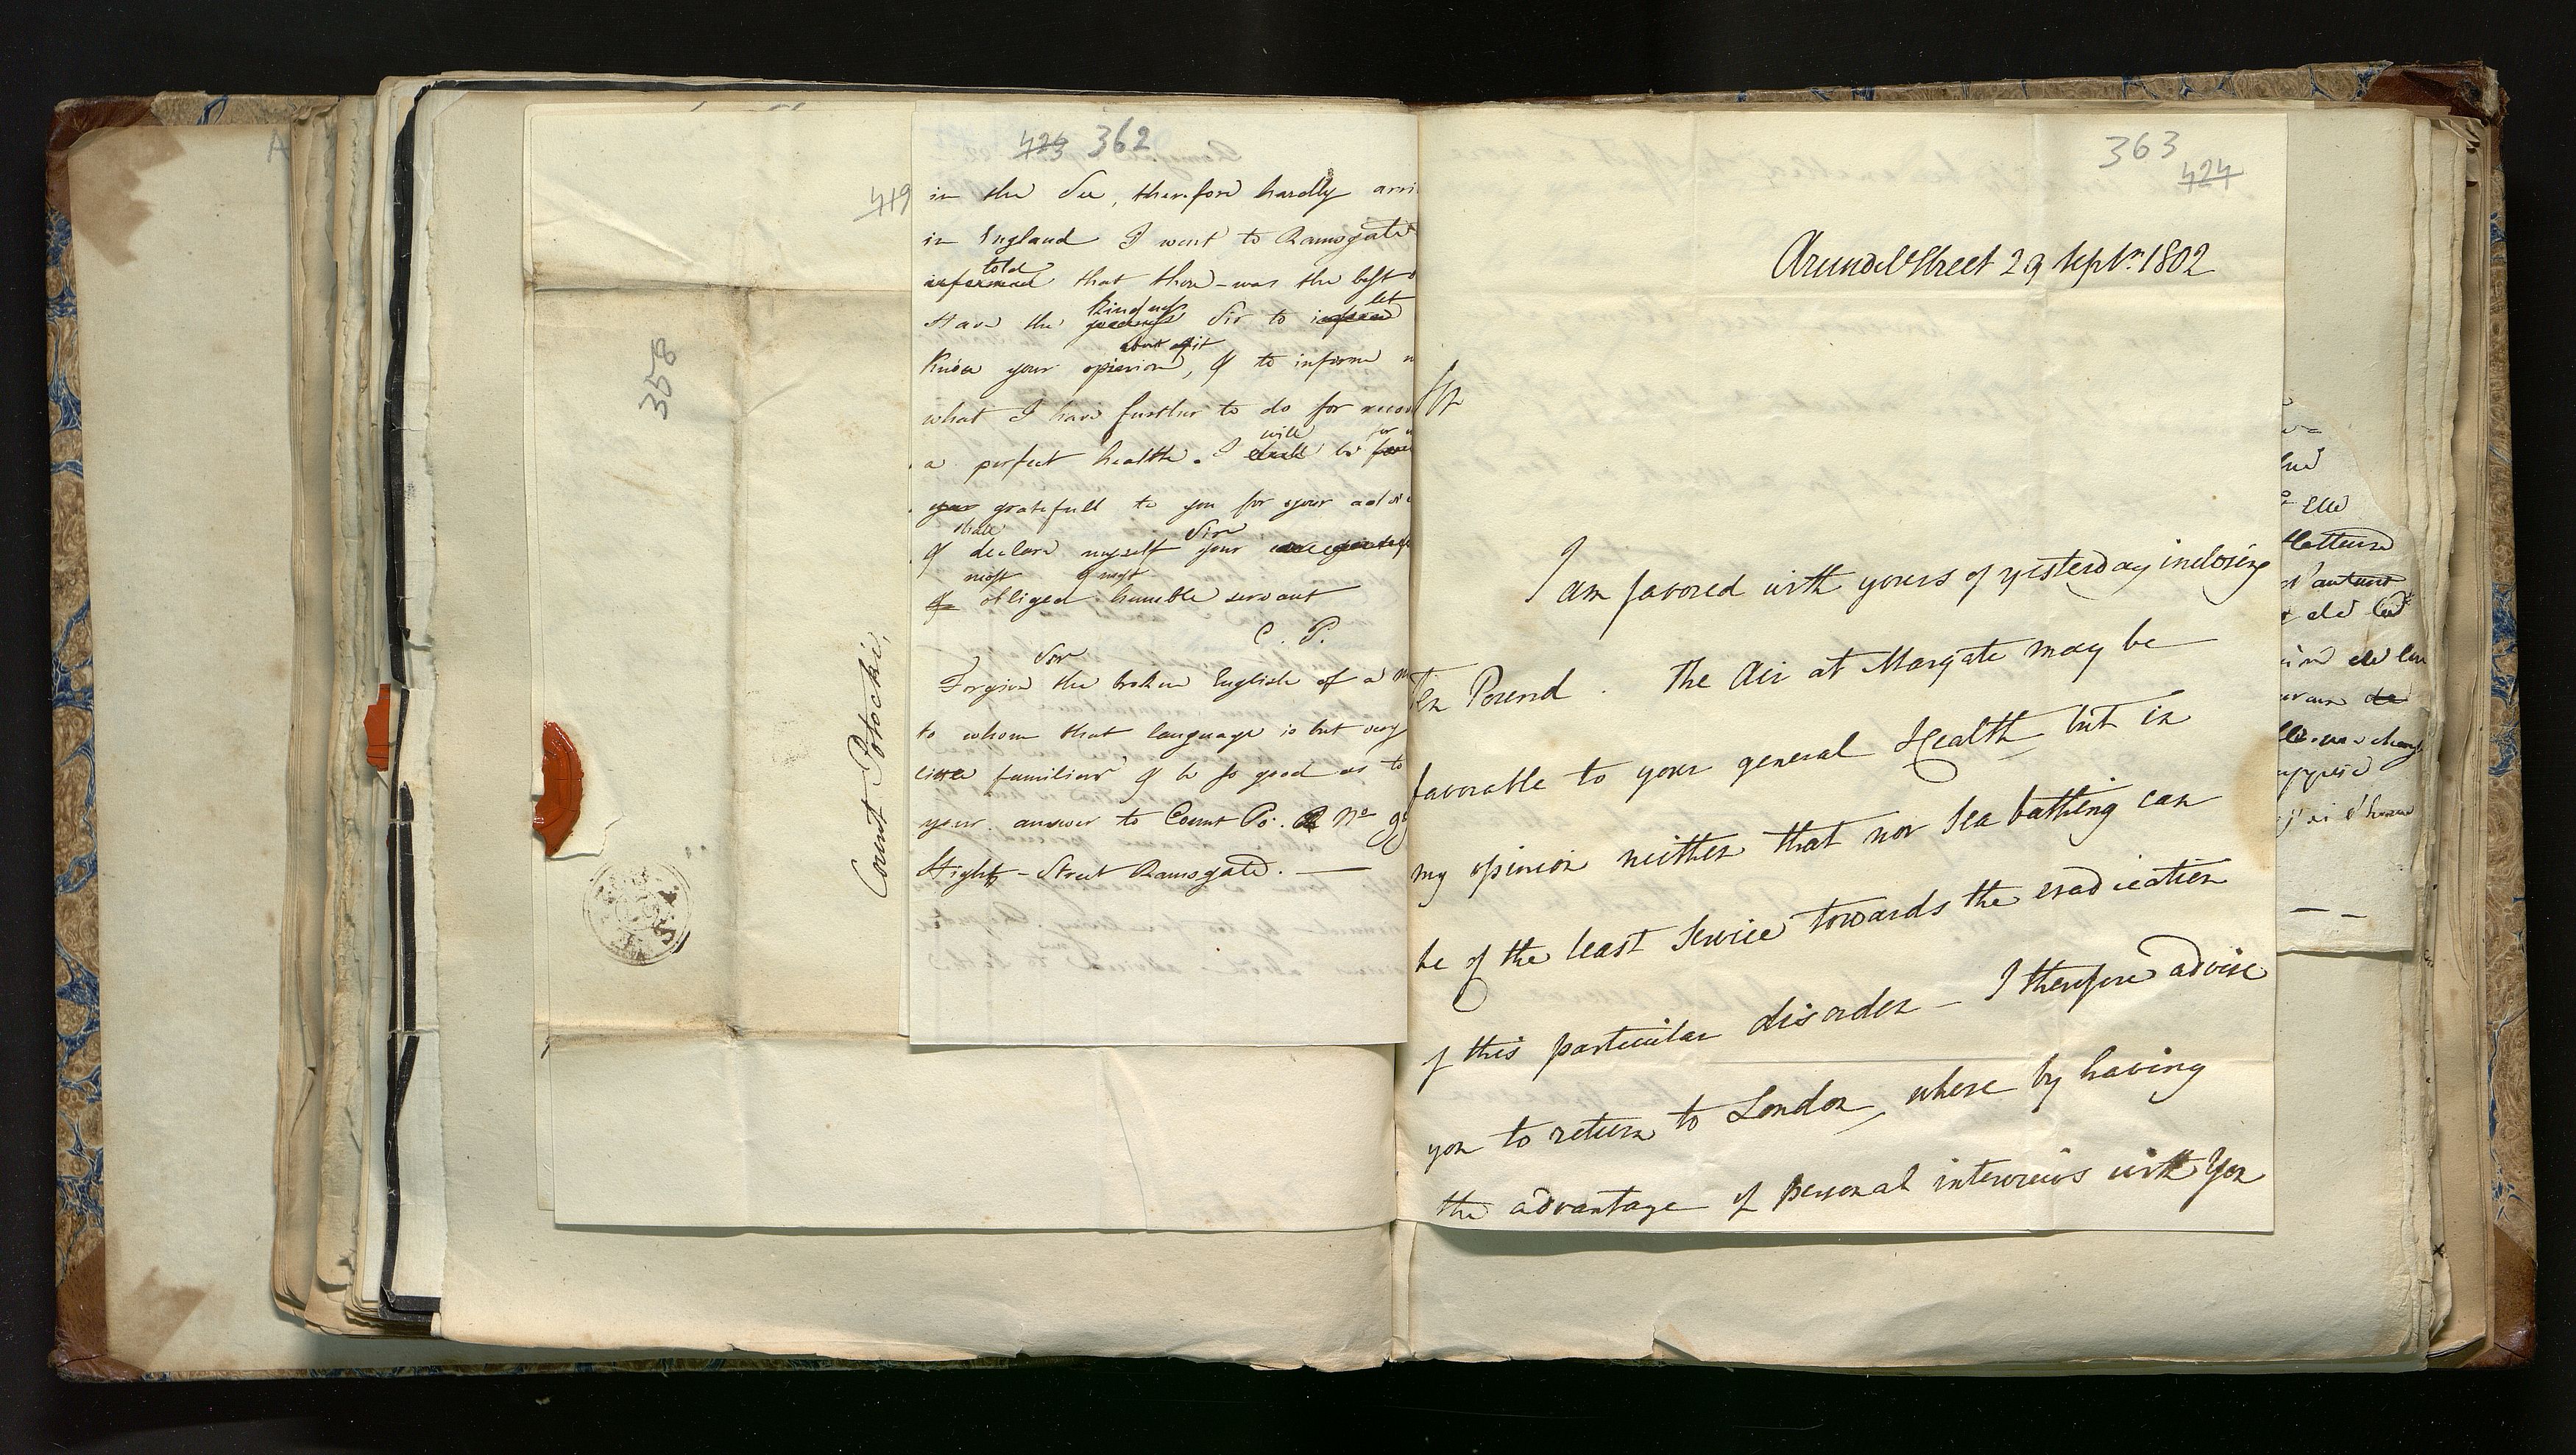 A
419
358
Count Potocki,
423 362
in the See, therefore hardly arri
in England I went to Ramsgate
told
informed that there was the best
kindness let
Have the Sir to
about it
know your opinion, & to inform
what I have further to do for recov
will for
a perfect health. I shall be
your gratefull to you for your advi
shall Sir
& declare myself your
most & most
& obliged humble servant
C. P.
Sir
Forgive the broken English of a m
to whom that language is but very
little familiar & be so good as to
your answer to Count Po. No 9
High-Street Ramsgate. —
363
424
Arundel Street 29 Septr. 1802
Sir
I am favored with yours of yesterday inclosing
Ten Pound. The Air at Margate may be
favorable to your general Health but in
my opinion neither that nor Sea bathing can
be of the least Service towards the eradication
of this particular disorder – I therefore advise
you to return to London, where by having
the advantage of personal interviews with You